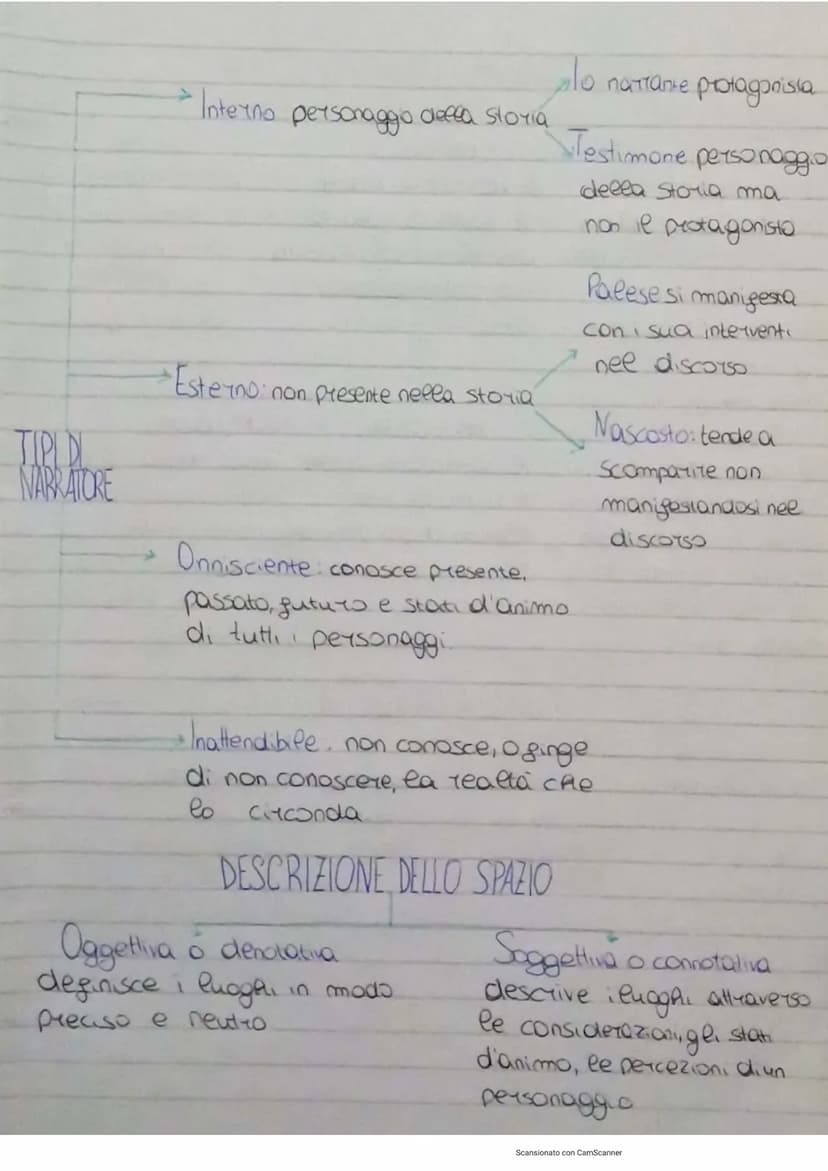 Io narrante protagonista
Interno personaggio della storia
Testimone personaggio
della storia ma
non il protagonista
Palese si manifesta
con i sua interventi
nel discorso
Esterno: non presente nella storia
Nascosto: tende a
scomparire non
manifestandosi nel
discorso
TIPI DI
NARRATORE
Onnisciente: conosce presente,
passato, futuro e stati d'animo
di tutti i personaggi.
Inattendibile. non conosce, o finge
di non conoscere, la realtà che
lo circonda
DESCRIZIONE DELLO SPAZIO
Oggettiva o denotativa
definisce i luoghi in modo
preciso e neutro
Soggettiva o connotativa
descrive i luoghi attraverso
le considerazioni, gli stati
d'animo, le percezioni di un
personaggio
Scansionato con CamScanner